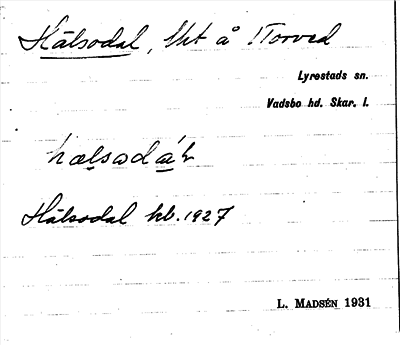 Hälsodal, lht å Torved
Lyrestads sn.
Vadsbo hd. Skar. l.
Hälsodal hb. 1927
L. MADSÉN 1931